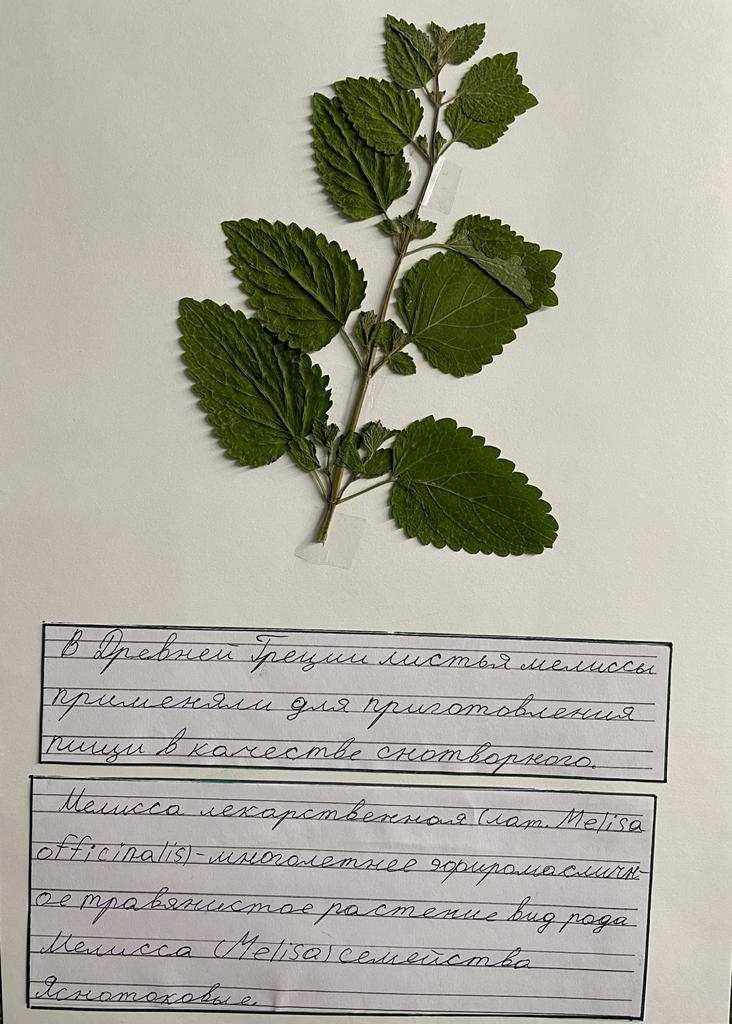 В Древней Греции листья мелиссы
применяли для приготовления
пищи в качестве снотворного.
Мелисса лекарственная (лат. Melisa
officinalis)-многолетнее эфиромасличн-
ое травянистое растение вид рода
Мелисса (Melisa) семейства
Яснотоковые.